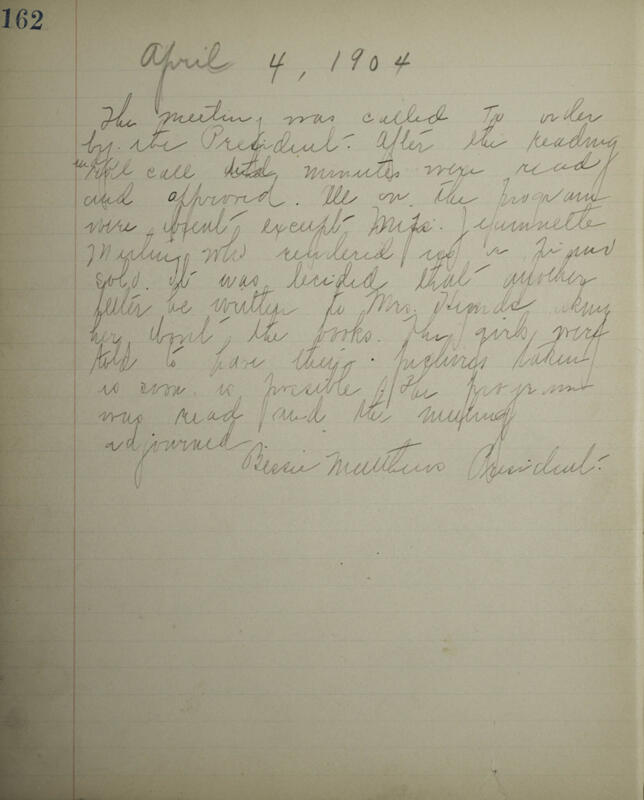 162
April 4, 1904
The meeting was called to order
by the President. After the reading
roll call minutes were read
and approved. All on the program
were absent except Miss. Jeannette
who rendered a Piano
solo. It was decided that another
letter be written to Mrs. asking
her about the books. The girls were
told to have their pictures taken
as soon as possible. The program
was read and the meeting
adjourned
Bessie Matthews President.